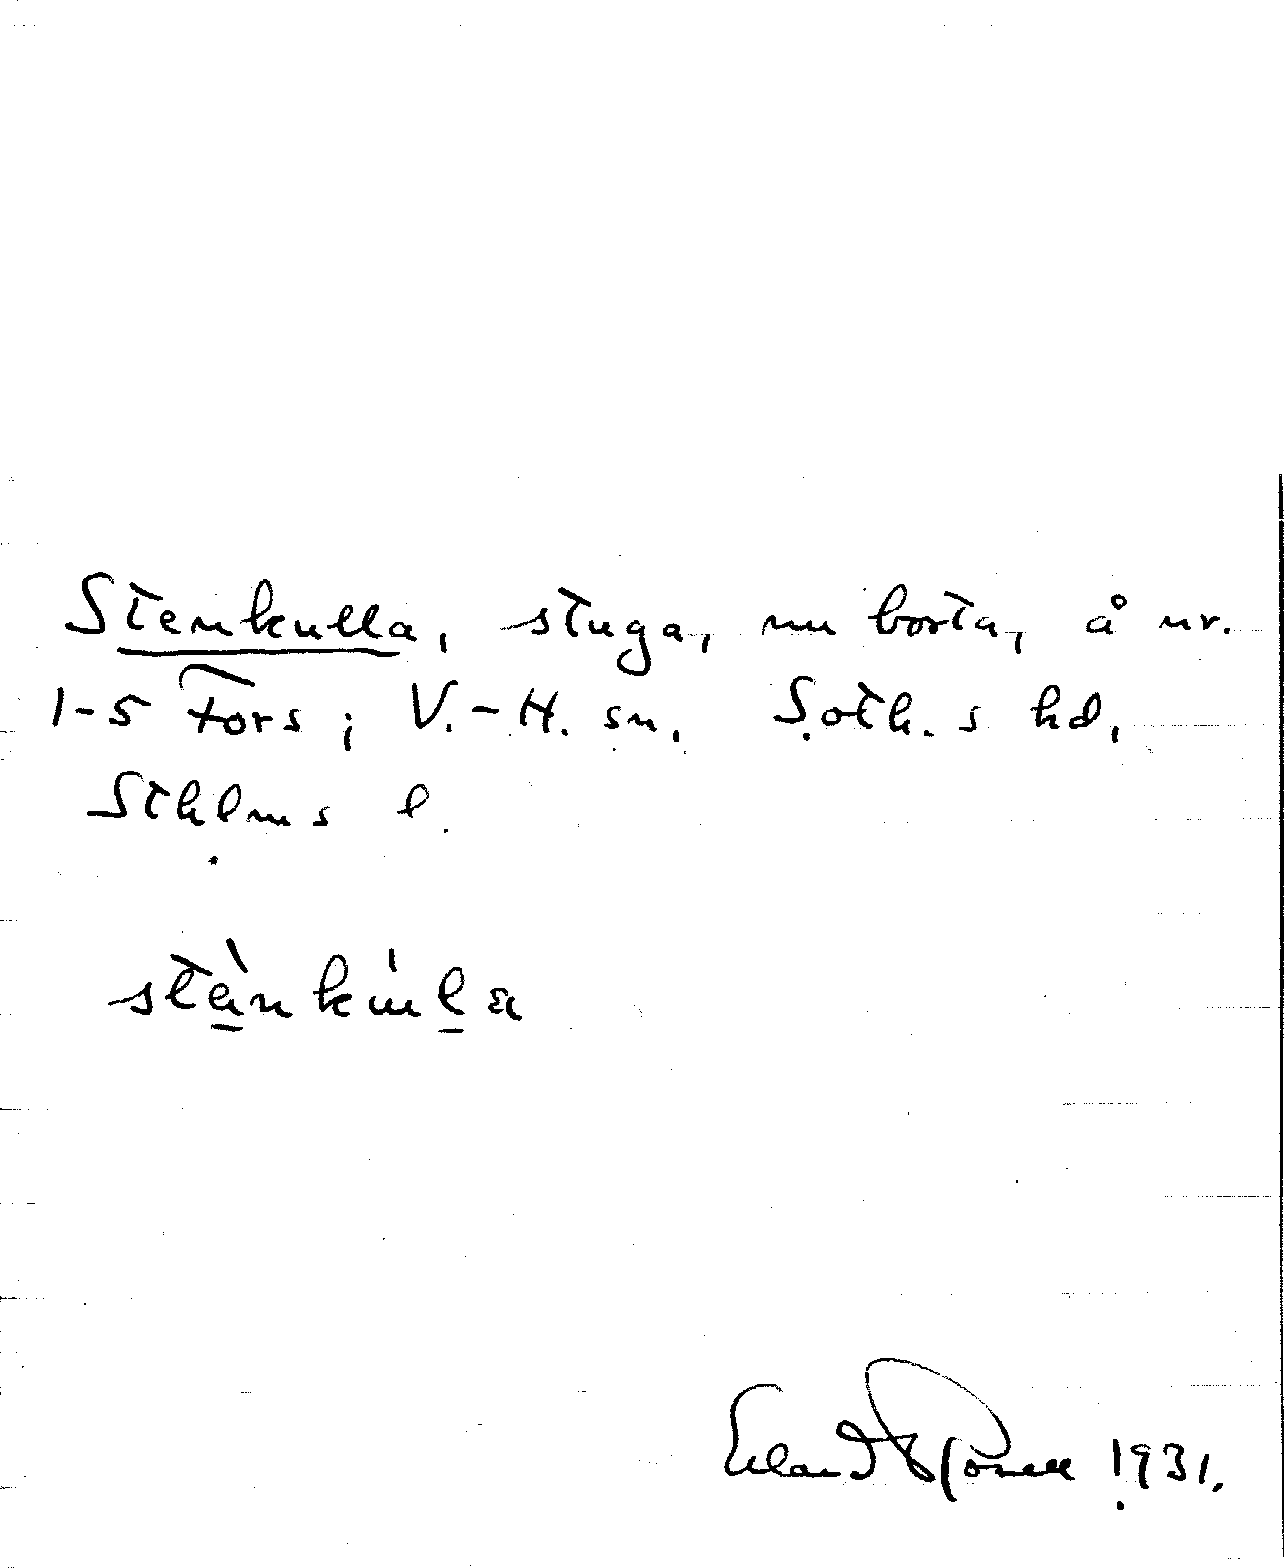 Stenkulla, stuga, nu borta, å nr.
1-5 Fors; V.-H. sn. Soth.s hd,
Sthlms l.
stènkúla
Erland Rosell 1931.